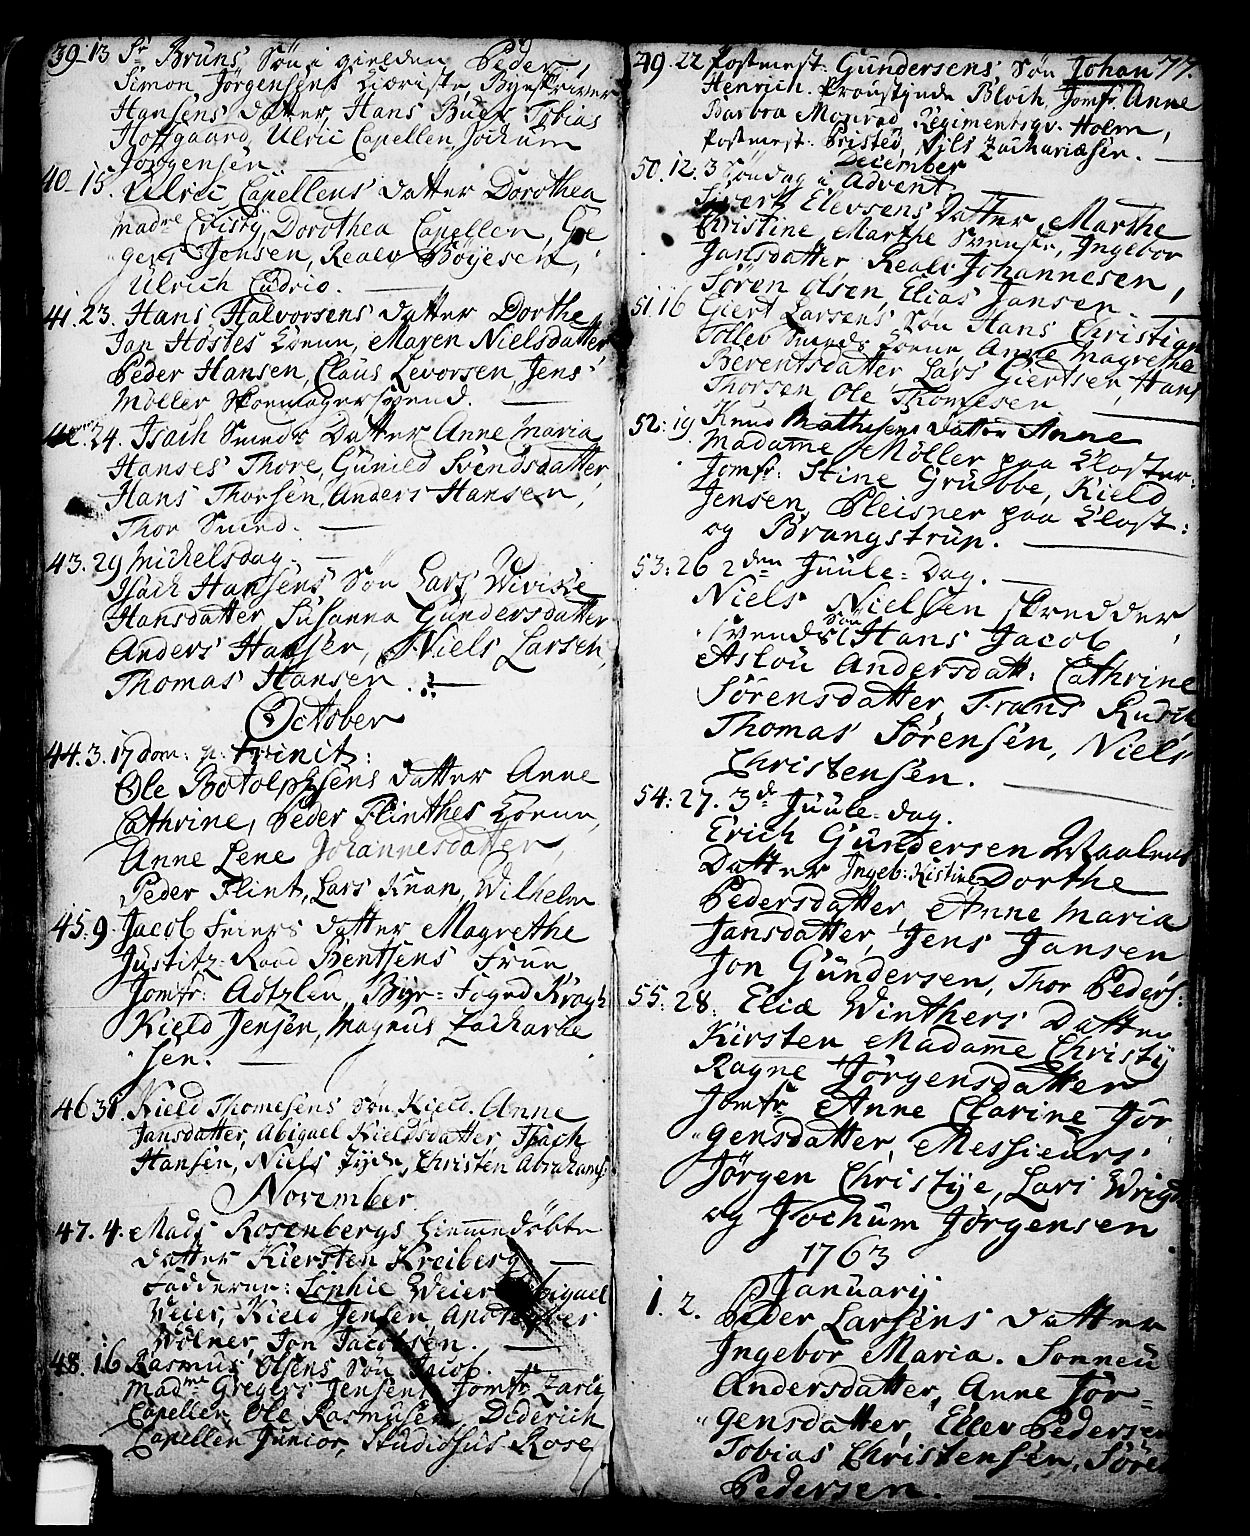 39 13 Sr Bruns Søn i gielden Peder,
Simon Jørgensens Kiæriste, Byeskriver
Hansens Datter, Hans Buer, Tobias
Hofgaard, Ulric Capellen, Jochum
Jørgensen
40. 15. Ulric Capellens Datter Dorothea
Madme Dorothea Capellen,
gers Jonsen, Realv Bøyesen,
Ulrich
41. 23. Hans Halvorsens Datter Dorthe
Jan Hostes Koene, Maren Nielsdatter,
Peder Hansen, Claus Levorsen, Jens
Møller Skoemagersvend.
42. 24. Isach Smeds Datter Anne Maria
Hanses Thore, Gunild Svendsdatter,
Hans Thorsen, Anders Hansen,
Thor Smed.
43. 29 Michelsdag.
Isach Hansens Søn Lars, Wiviche
Hansdatter, Susanna Gundersdatter
Anders Hansen, Niels Larsen,
Thomas Hansen.
October
44. 3. 17 dom: p: trinit:
Ole Botolphsens Datter Anne
Cathrine, Peder Flinthes Koene,
Anne Lene Johannesdatter,
Peder Flint, Lars Knan, Wilhelm
45. 9. Jacob Feiers Datter Magrethe
Justitz-Raad Bentsens Frue
Jomfr: Adtzlen, Bye-Foged Kragh
Kield Jensen, Magnus Zacharie
sen.
46 31. Kield Thomesens Søn Kield. Anne
Jansdatter, Abigael Kieldsdatter, Isach
Hansen, Niels Jyde, Christen Abrahams:
November
47. 4. Mads Rosenbergs hiemmedøbte
Datter Kiersten Kreiberg
Fadderne: Sophie Weier, Abigael
Weier, Kield Jensen, Apotheqver
Wølner, Jon Jacobsen.
48. 16 Rasmus Olsens Søn Jacob.
Madme Gregers Jensen, Jomfr Zarig
Capellen, Ole Rasmusen, Diderich
Capellen Junior, Studiosus Rose
49. 22 Postmest: Gundersens Søn Johan 77.
Henrich. Proustinde Bloch, Jomfr. Anne
Barbra Monrad, Regimentsqv. Holm,
Postmest: Bristed, Nils Zachariæsen.
December
50. 12. 3 Søndag i Advent
Sivert Elevsens Datter Marthe
Christine, Marthe Svends, Ingebor
Jansdatter, Realv Johannesen,
Søren Olsen, Elias Jansen
51. 16 Giert Larsens Søn Hans Christian
Tollev Smeds Koene, Anne Magrethe
Berentsdatter, Lars Giertsen, Hans
Thorsen, Ole Thomesen
52. 19 Knud Mathisens Datter Anne
Madame Møller paa Kloster.
Jomfr. Stine Grubbe, Kield
Jensen, Pleisner paa Klost:
og Brangstrup.
53: 26 2den Juule-Dag.
Niels Nielsen skredder
svends Søn Hans Jacob
Aslou Andersdatt: Cathrine
Sørensdatter, Frans
Thomas Sørensen, Niels
Christensen.
54: 27. 3de Juule-dag.
Erich Gundersen Waalens
Datter Ingeb: Kistine Dorthe
Pedersdatter, Anne Maria
Jansdatter, Jens Jansen
Jon Gundersen, Thor Peders:
55. 28. Eliæ Winthers Datter
Kirsten Madame Christy
Ragne Jørgensdatter
Jomfr Anne Clarine Jør
gensdatter, Messieurs.
Jørgen Christye, Lars Wright
og Jochum Jørgensen
1763
Januarij
1. 2. Peder Larsens Datter
Ingebor Maria. Sonneu
Andersdatter, Anne Jør-
gensdatter, Ellev Pedersen
Tobias Christensen, Søren
Pedersen.